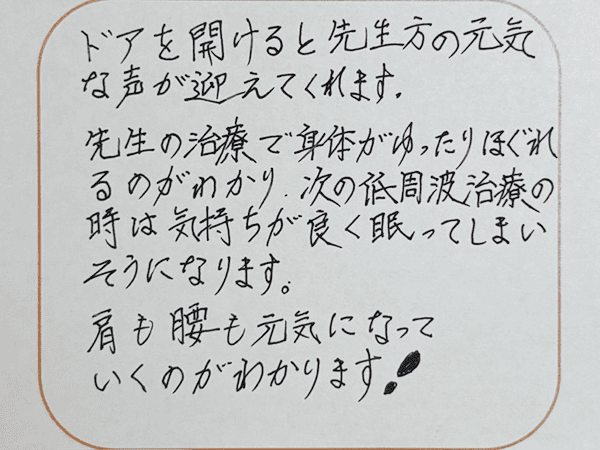 ドアを開けると先生方の元気
な声が迎えてくれます.
先生の治療で身体がゆったりほぐれ
るのがわかり.次の低周波治療の
時は気持ちが良く眠ってしまい
そうになります。
肩も腰も元気になって
いくのがわかります!